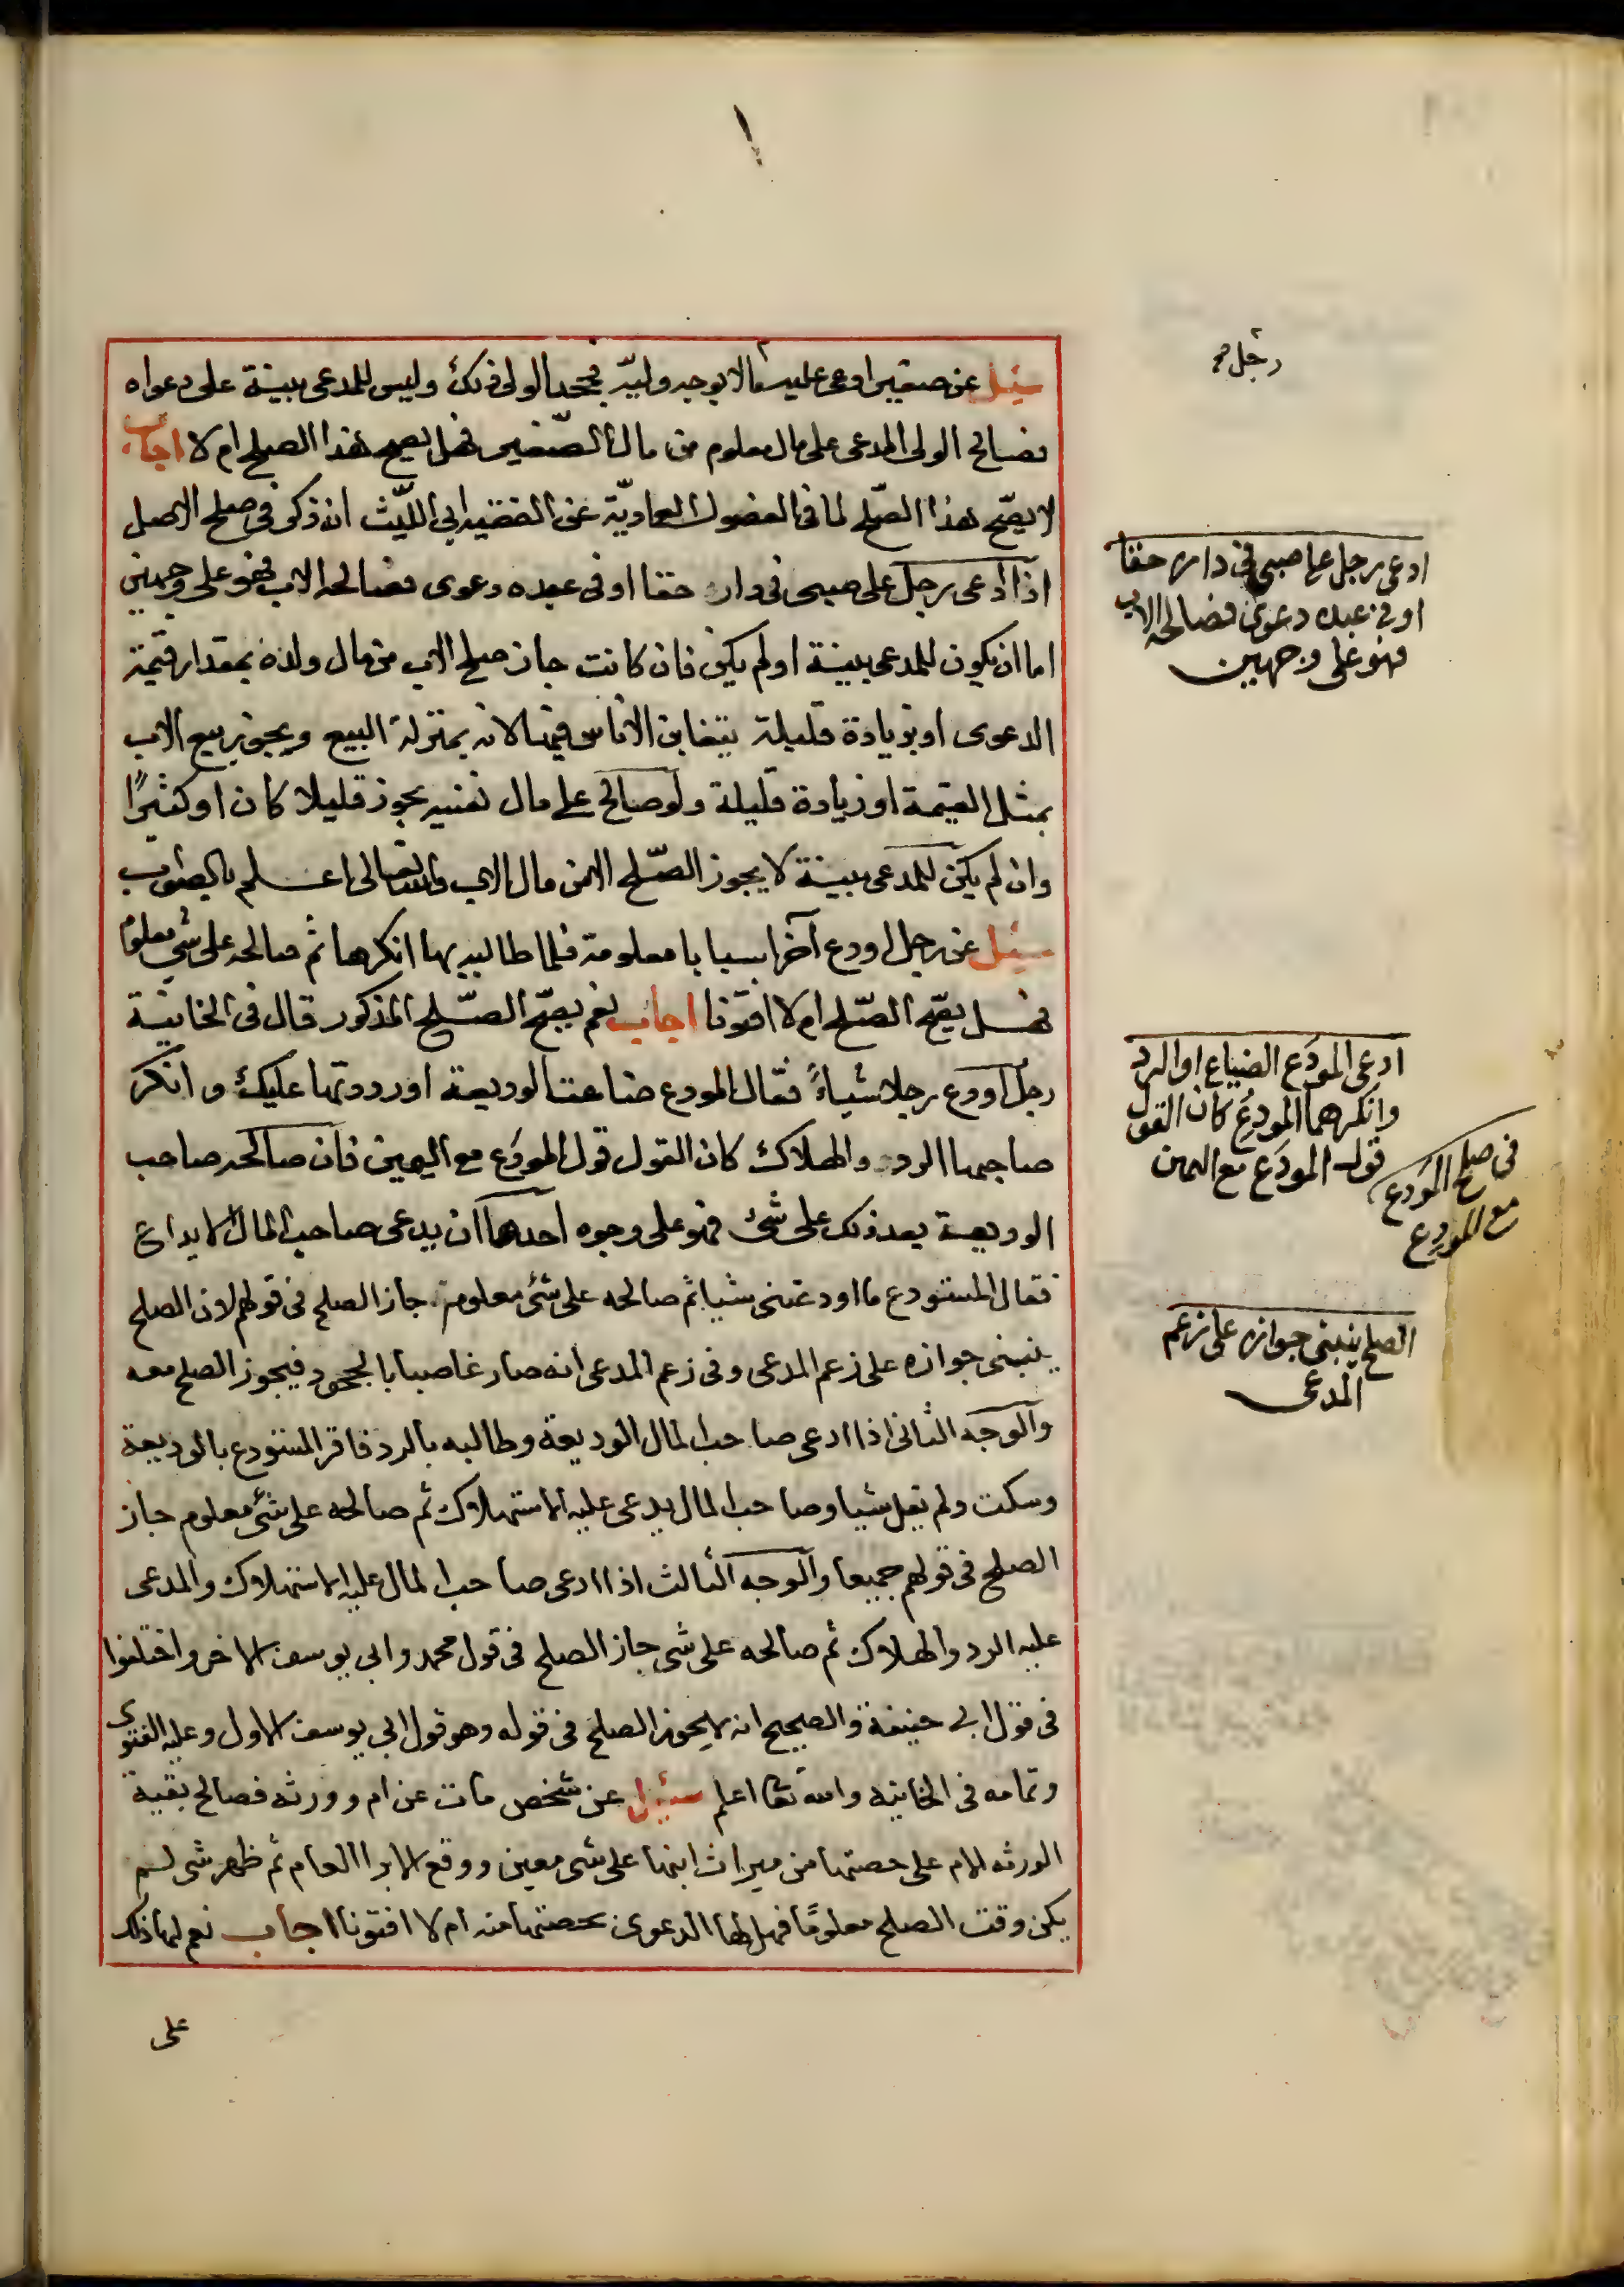 سئل عن صغير ادعى عليه مالا بوجه وليه فجحد الولى ذلك وليس للمدعى بينة على دعواه
فصالح الولى المدعى على مال معلوم من مال الصغير فهل يصح هذا الصلح ام لا اجاب
لا يصح هذا الصلح لما فى الفصول العمادية عن الفقيه ابى الليث انه ذكر فى صلح الاصل
اذا ادعى رجل على صبى فى دار حقا او فى عبده دعوى فصالحه الاب فهو على وجهين
اما ان يكون للمدعى بينة او لم يكن فان كانت جاز صلح الاب من مال ولده بمقدار قيمة
الدعوى او بزيادة قليلة يتغابن الناس فيها لانه بمنزلة البيع ويجوز بيع الاب
بمثل القيمة او زيادة قليلة ولو صالح على مال نفسه يجوز قليلا كان او كثيرًا
وان لم يكن للمدعى بينة لا يجوز الصلح الا من مال الاب والله تعالى اعلم بالصواب
سئل عن رجل اودع آخر اسبابا معلومة فلما طالبه بها انكرها ثم صالحه على شىء معلوم
فهل يصح الصلح ام لا افتونا اجاب نعم يصح الصلح المذكور قال فى الخانية
رجل اودع رجلا شياءً فقال المودع ضاعت الوديعة او رددتها عليك وانكر
صاحبها الرد والهلاك كان القول قول المودَع مع اليمين فان صالحه صاحب
الوديعة بعد ذلك على شئ فهو على وجوه احدها ان يدعى صاحب المال الايداع
فقال المستودع ما اودعتنى شيا ثم صالحه على شئ معلوم جاز الصلح فى قولهم لان الصلح
ينبنى جوازه على زعم المدعى وفى زعم المدعى انه صار غاصبا بالجحود فيجوز الصلح معه
والوجه الثانى اذا ادعى صاحب المال الوديعة وطالبه بالرد فاقر المستودع بالوديعة
وسكت ولم يقل شيا وصاحب المال يدعى عليه الاستهلاك ثم صالحه على شئ معلوم جاز
الصلح فى قولهم جميعا والوجه الثالث اذا ادعى صاحب المال عليه الاستهلاك والمدعى
عليه الرد والهلاك ثم صالحه على شى جاز الصلح فى قول محمد وابى يوسف الاخر واختلفوا
فى قول ابى حنيفة والصحيح انه لا يجوز الصلح فى قوله وهو قول ابى يوسف الاول وعليه الفتوى
وتمامه فى الخانيه والله تعا اعلم سئل عن شخص مات عن ام وورثه فصالح بقية
الورثه الام على حصتها من ميراث ابنها على شى معين ووقع الابرا العام ثم ظهر شى لم
يكن وقت الصلح معلومًا فهل لها الدعوى بحصتها منه ام لا افتونا اجاب نعم لها ذلك
على
رجل صح
ادعى رجل على صبى فى داره حقا
او فى عبده دعوى فصالحه الاب
فهو على وجهين
ادعى المودَع الضياع او الرد
وانكرهما المودِع كان القول
قول المودَع مع اليمين
فى صلح المودَع
مع المودِع
الصلح ينبنى جوازه على زعم
المدعى